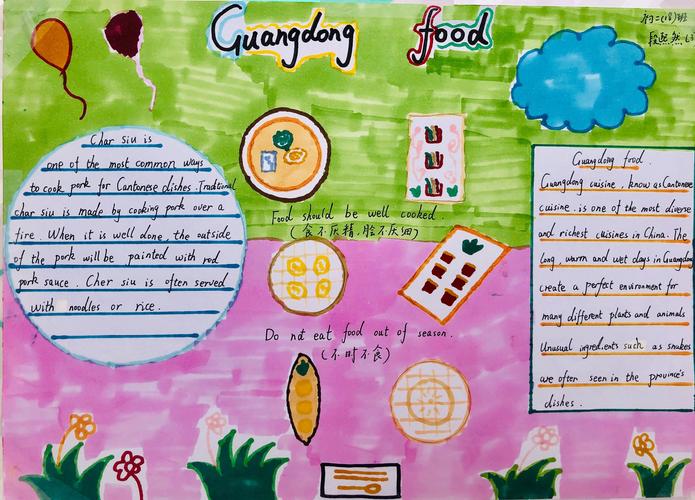 Guangdong food
初二(18)班
段熙然
Char siu is
one of the most common ways
to cook pork for Cantonese dishes. Traditional
char siu is made by cooking pork over a
fire. When it is well done, the outside
of the pork will be painted with red
pork sauce. Cher siu is often served
with noodles or rice.
Food should be well cooked.
(食不厌精,脍不厌细)
Do not eat food out of season.
(不时不食)
Guangdong food.
Guangdong cuisine, know as Cantonese
cuisine. is one of the most diverse
and richest cuisines in China. The
long, warm and wet days in Guangdong
create a perfect environment for
many different plants and animals
Unusual ingredients such as snakes
are often seen in the province's
dishes.